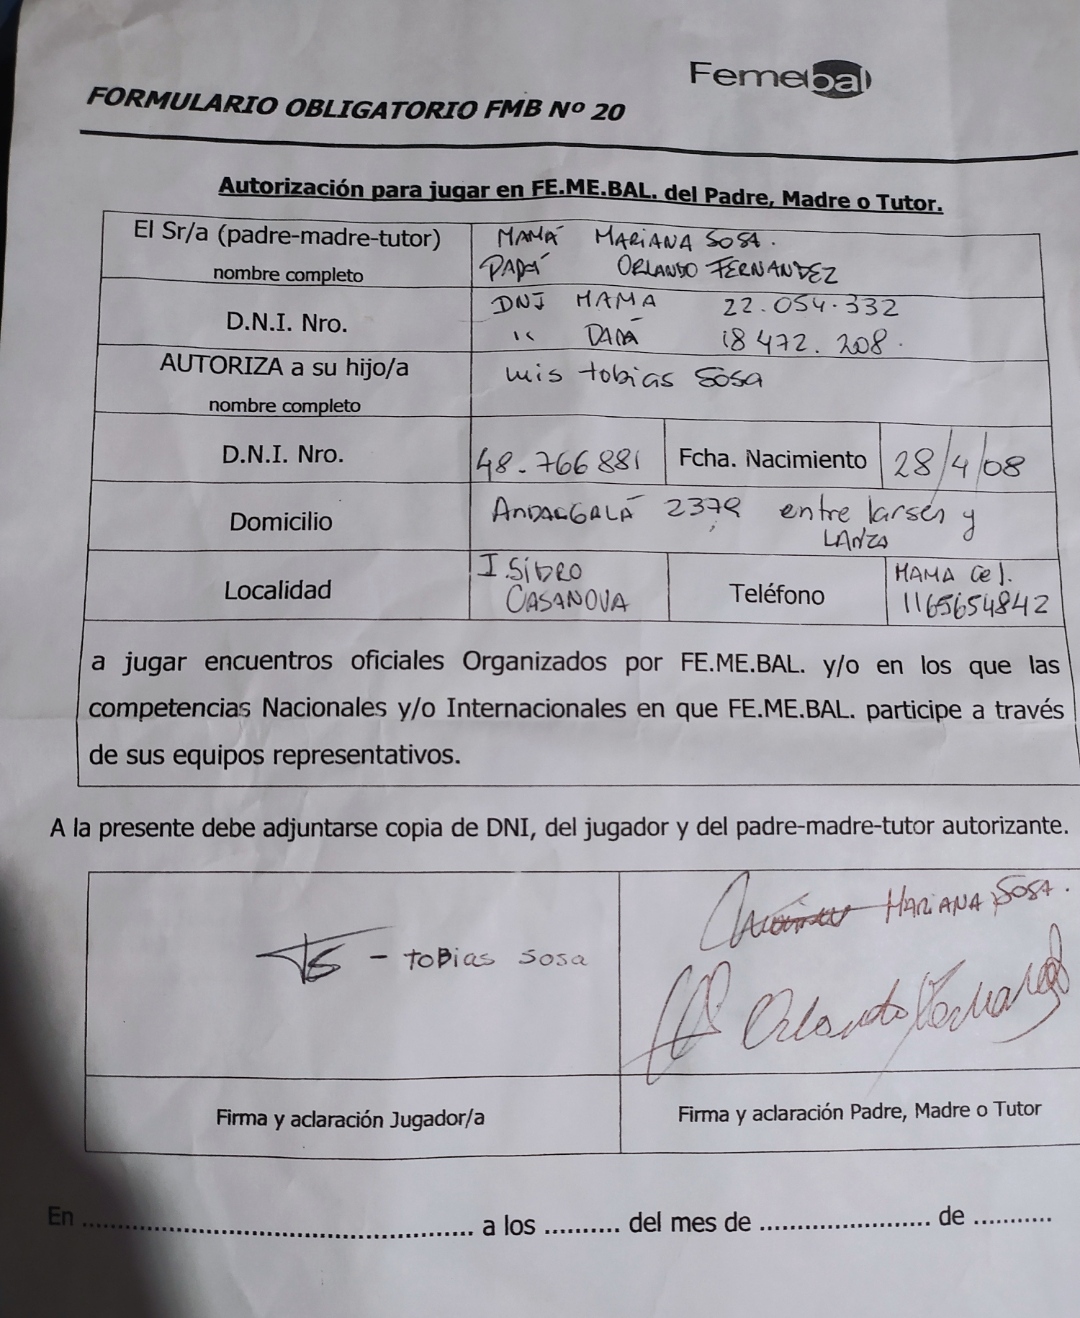 Femebal
FORMULARIO OBLIGATORIO FMB Nº 20
Autorización para jugar en FE.ME.BAL. del Padre, Madre o Tutor.
El Sr/a (padre-madre-tutor)
nombre completo
MAMÁ MARIANA SOSA.
PAPÁ ORLANDO FERNANDEZ
D.N.I. Nro.
DNI MAMA 22.054.332
" PAPÁ 18 472. 208.
AUTORIZA a su hijo/a
nombre completo
Luis tobias Sosa
D.N.I. Nro. 48.766881 Fcha. Nacimiento 28/4/08
Domicilio
ANDALGALÁ 2379 entre larsen y
LANZA
Localidad
I. SIDRO
CASANOVA
Teléfono
MAMA Cel.
1165654842
a jugar encuentros oficiales Organizados por FE.ME.BAL. y/o en los que las
competencias Nacionales y/o Internacionales en que FE.ME.BAL. participe a través
de sus equipos representativos.
A la presente debe adjuntarse copia de DNI, del jugador y del padre-madre-tutor autorizante.
TS - tobias sosa
MARIANA SOSA.
Orlando Fernandez
Firma y aclaración Jugador/a
Firma y aclaración Padre, Madre o Tutor
En ........................................ a los .......... del mes de ...................... de ...........